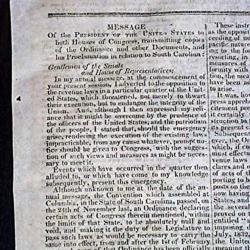 MESSAGE
Of the PRESIDENT OF THE UNITED STATES to
both Houses of Congress, transmitting copies
of the Ordinance and other Documents, and
his Proclamation in relation to South Carolina:
Gentlemen of the Senate
and House of Representatives,
In my annual message, at the commencement of
your present session, I adverted to the opposition to
the revenue laws in a particular quarter of the Unit-
ed States, which threatened, not merely to thwart
their execution, but to endanger the integrity of the
Union. And, although I then expressed my reli-
ance that it might be overcome by the prudence of
the officers of the United States, and the patriotism
of the people, I stated that, should the emergency
arise, rendering the execution of the existing laws
impracticable, from any cause whatever, prompt no-
tice should be given to Congress, with the sugges-
tion of such views and measures as might be neces-
sary to meet it.
Events which have occurred in the quarter then
alluded to, or which have come to my knowledge
subsequently, present this emergency.
Although unknown to me at the date of the an-
nual message, the Convention which assembled at
Columbia, in the State of South Carolina, passed, on
the 24th of November last, an Ordinance declaring
certain acts of Congress therein mentioned, within
the limits of that State, to be absolutely null and
void, and making it the duty of the Legislature to
pass such laws as would be necessary to carry the
same into effect, from and after the 1st of February